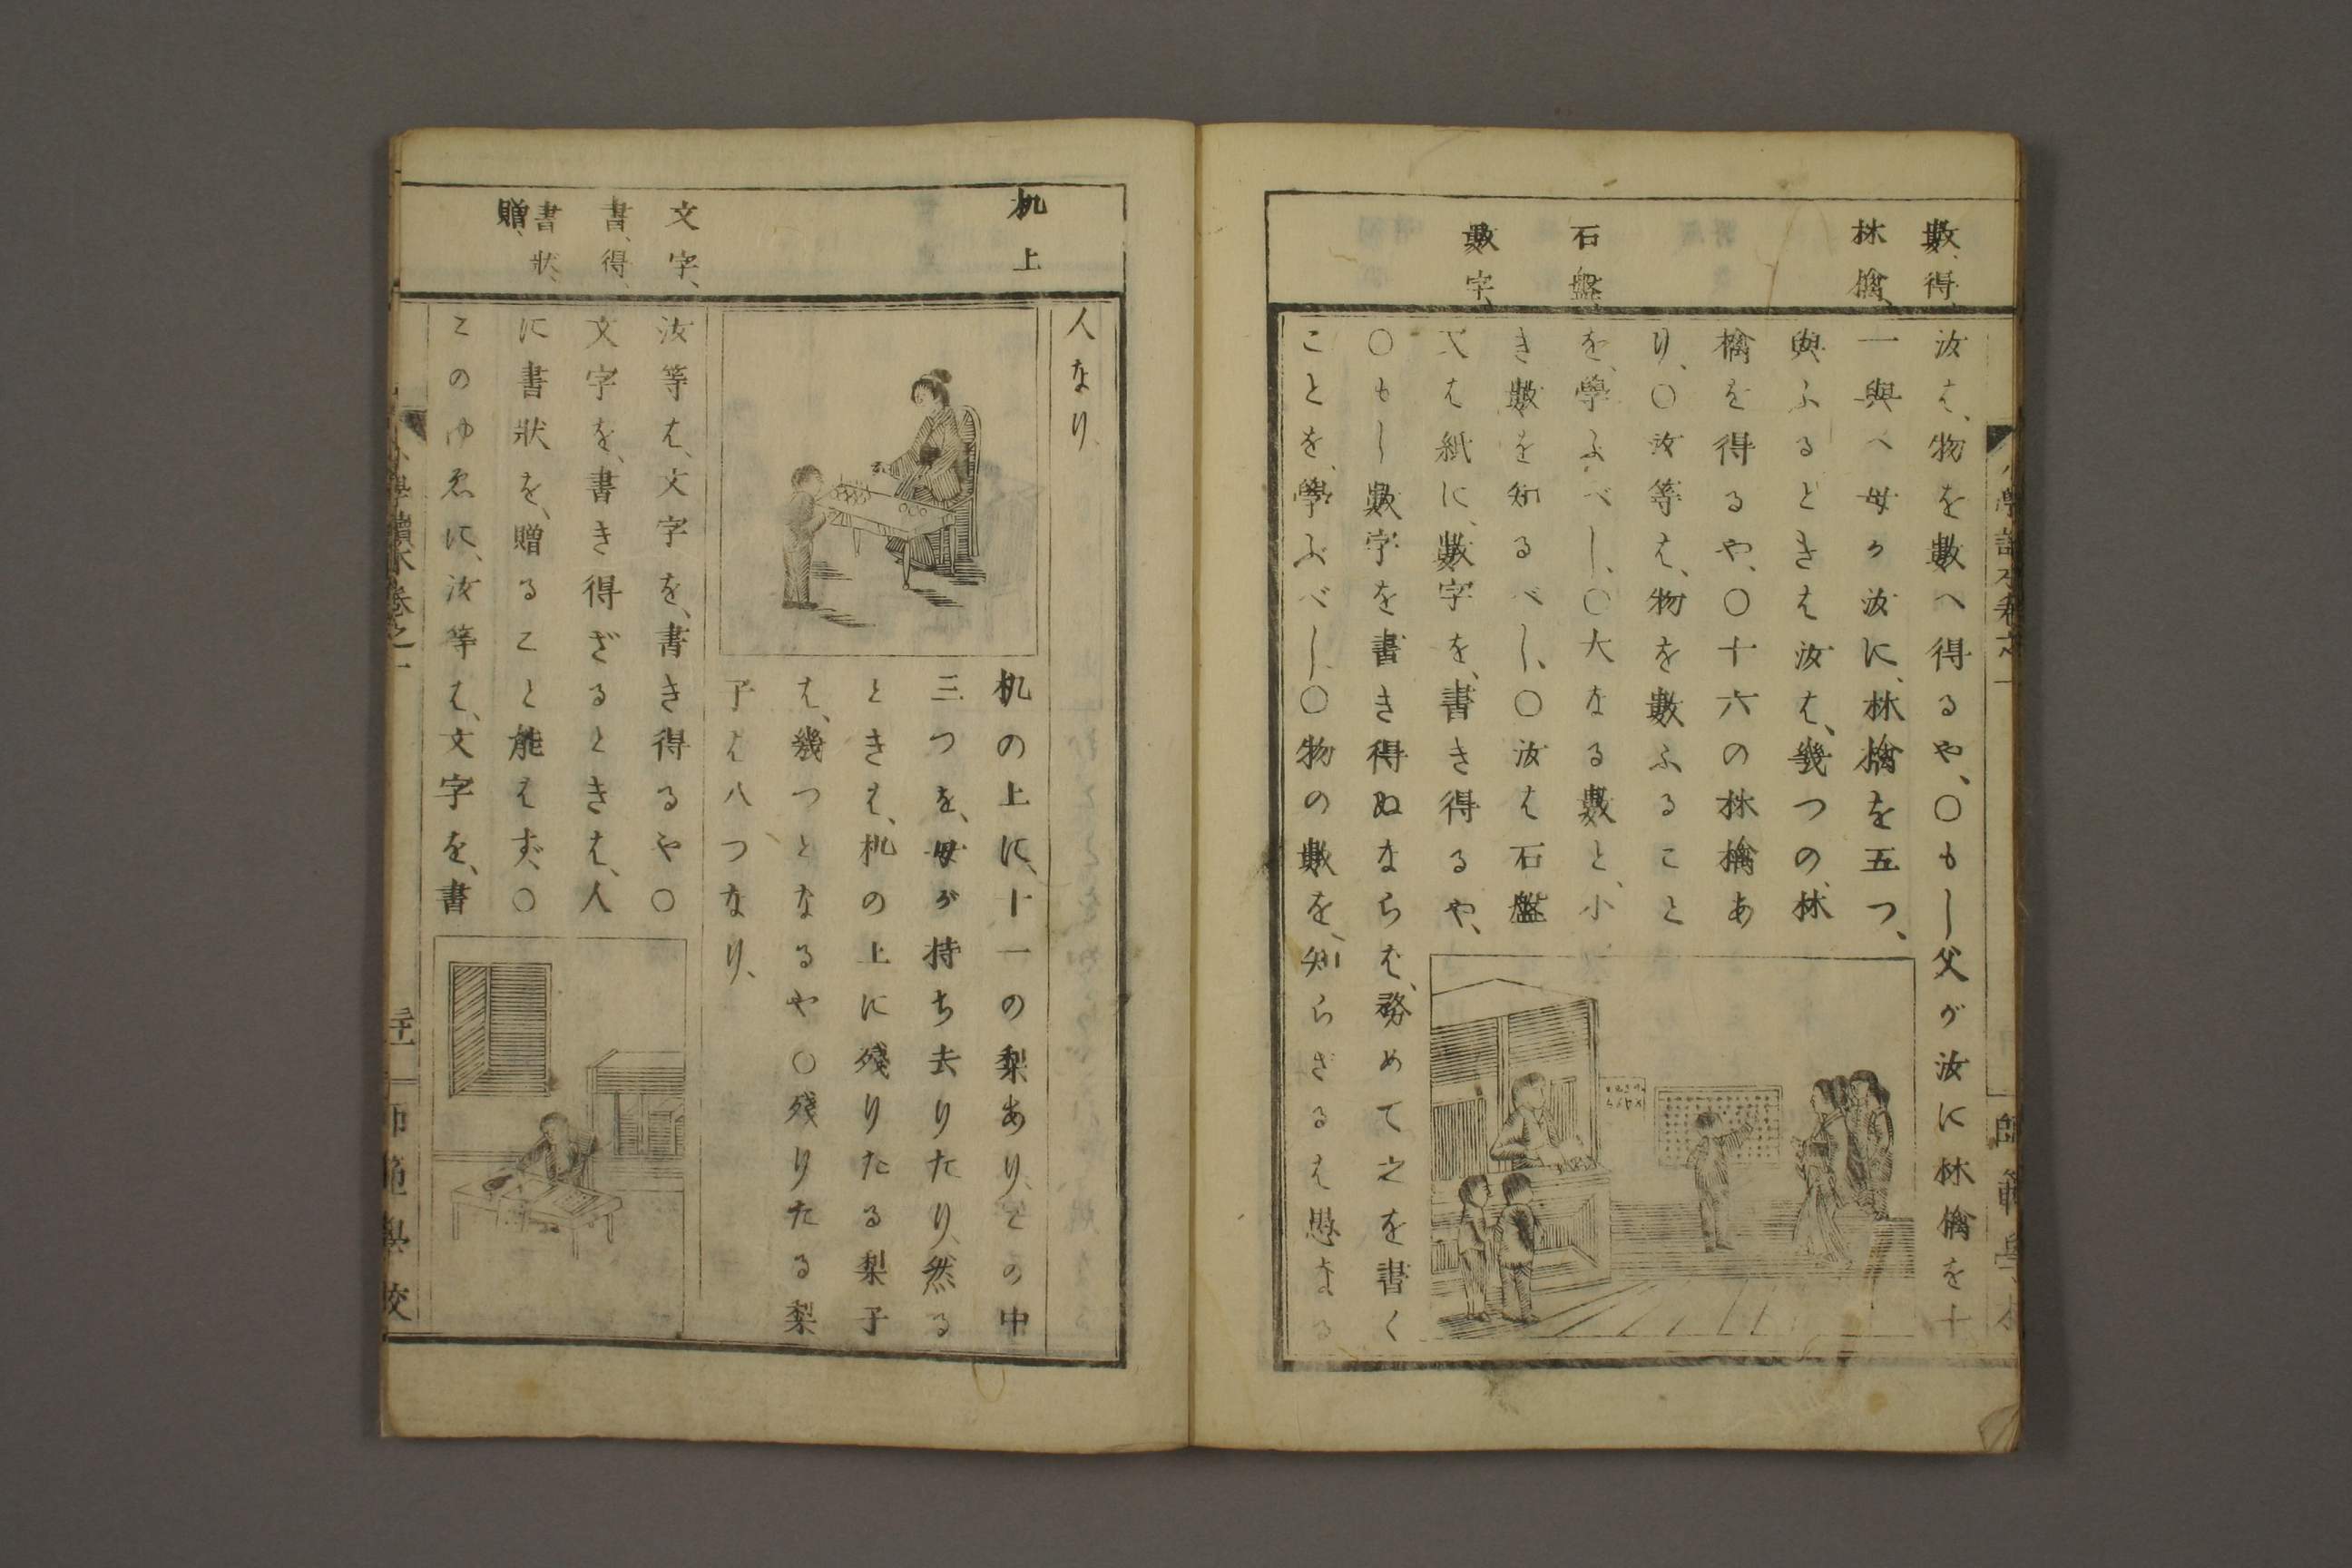 數、得、
林檎、
石盤、
數字、
汝は、物を數へ得るや、〇もし父が汝に林檎を十
一與へ母が汝に、林檎を五つ、
與ふるときは汝は、幾つの、林
檎を得るや、〇十六の林檎あ
り、〇汝等は、物を數ふること
を、學ぶべし、〇大なる數と、小
き數を知るべし、〇汝は石盤
又は紙に、數字を、書き得るや、
〇もし數字を書き得ぬならば、務めて之を書く
ことを、學ぶべし、〇物の數を、知らざるは愚なる
師範學校
机上
文字、
書、得、
書狀、
贈、
人なり、
机の上に、十一の梨あり、この中
三つを、母が持ち去りたり、然る
ときは、机の上に殘りたる梨子
は、幾つとなるや〇殘りたる梨
子は八つなり、
汝等は、文字を、書き得るや〇
文字を、書き得ざるときは、人
に書狀を、贈ること能はず、〇
このゆゑに、汝等は、文字を、書
小學讀本卷之一
師範學校